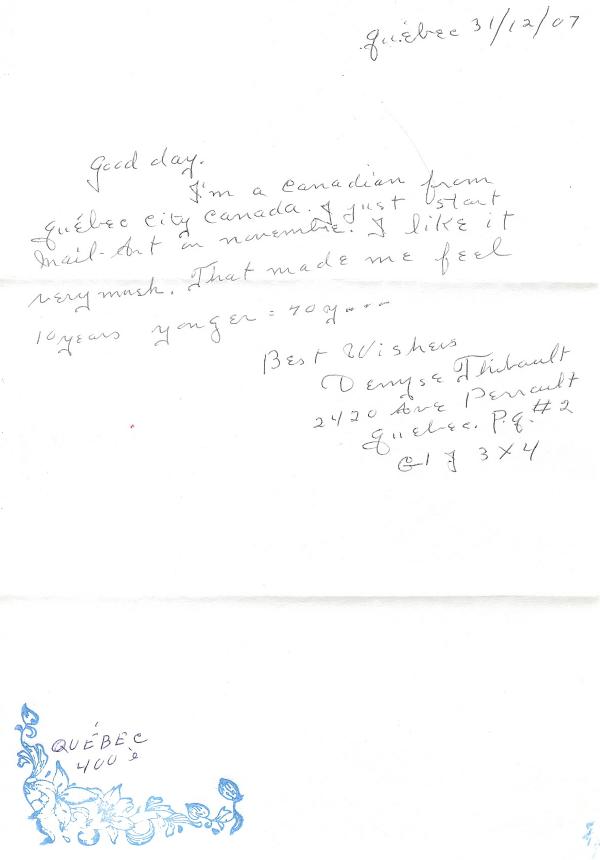 Québec 31/12/07
Good day.
I'm a canadian from
Québec city Canada. I just start
Mail-Art on novembre. I like it
very mush. That made me feel
10 years yonger = 70 y....
Best Wishers
Denyse Thibault
2420 Ave Perrault
Quebec. P.q. #2
G1J 3X4
QUÉBEC
400 è